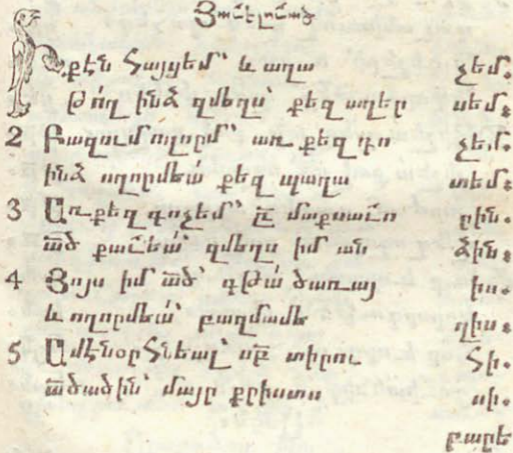 Յաւելուած
Ի քէն հայցեմ՝ և աղա չեմ.
Թո՛ղ ինձ զմեղս՝ քեզ աղեր սեմ։
2 Բազում ողորմ՝ առ քեզ գո չեմ.
ինձ ողորմեա՛ քեզ պաղա տեմ։
3 Առ քեզ գոչեմ՝ մաքսաւո րին.
ած քաւեա՛՝ զմեղս իմ ան ձին։
4 Յոյս իմ ած՝ գթա՛ ծառայ իս.
և ողորմեա՛՝ բազմամե ղիս։
5 Ամէնօրհնեալ՝ սբ տիրու հի.
ածածին՝ մայր քրիստո սի.
բարե